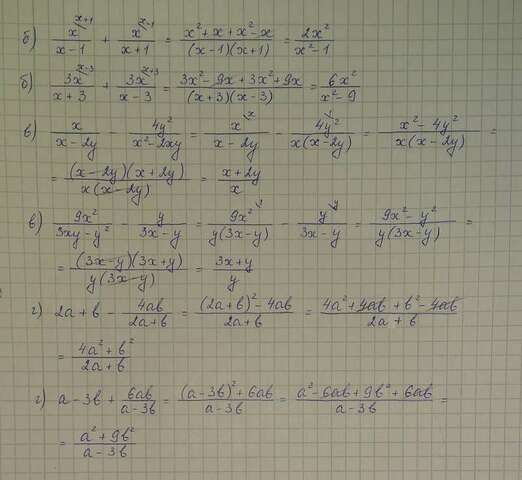 б) x^{x+1}/(x-1) + x^{x-1}/(x+1) = (x²+x+x²-x)/((x-1)(x+1)) = 2x²/(x²-1)
б) 3x^{x-3}/(x+3) + 3x^{x+3}/(x-3) = (3x²-9x+3x²+9x)/((x+3)(x-3)) = 6x²/(x²-9)
в) x/(x-2y) - 4y²/(x²-2xy) = x^{x}/(x-2y) - 4y²^{1}/(x(x-2y)) = (x²-4y²)/(x(x-2y)) =
= (x-2y)(x+2y)/(x(x-2y)) = (x+2y)/x
в) 9x²/(3xy-y²) - y/(3x-y) = 9x²^{1}/(y(3x-y)) - y^{y}/(3x-y) = (9x²-y²)/(y(3x-y)) =
= (3x-y)(3x+y)/(y(3x-y)) = (3x+y)/y
г) 2a+b - 4ab/(2a+b) = ((2a+b)²-4ab)/(2a+b) = (4a²+4ab+b²-4ab)/(2a+b)
= (4a²+b²)/(2a+b)
г) a-3b + 6ab/(a-3b) = ((a-3b)²+6ab)/(a-3b) = (a²-6ab+9b²+6ab)/(a-3b) =
= (a²+9b²)/(a-3b)